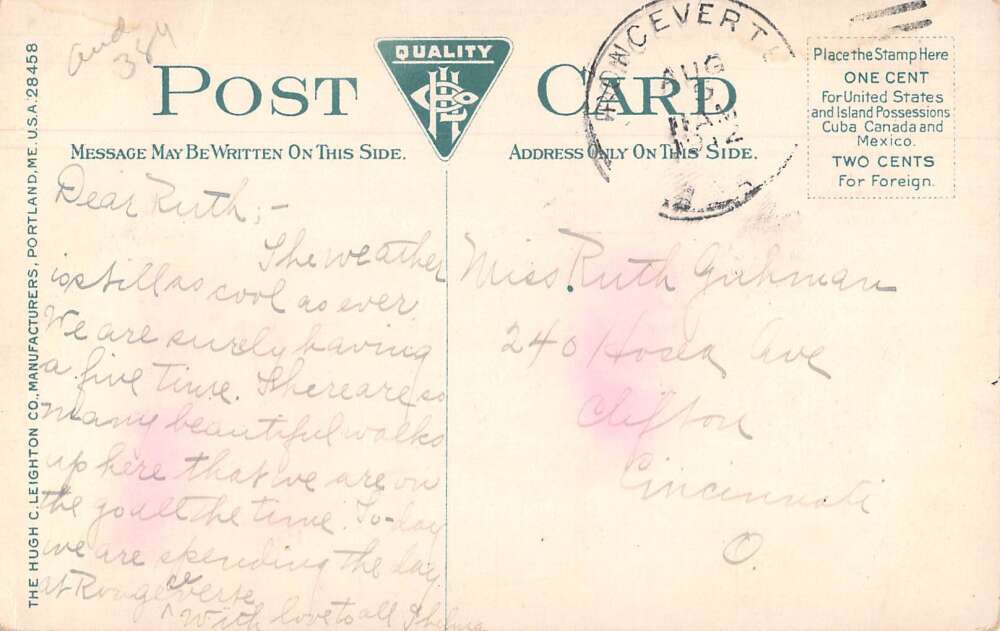 POST CARD
QUALITY
MESSAGE MAY BE WRITTEN ON THIS SIDE.
ADDRESS ONLY ON THIS SIDE.
Place the Stamp Here
ONE CENT
For United States
and Island Possessions
Cuba Canada and
Mexico.
TWO CENTS
For Foreign.
AUG
1912
THE HUGH C. LEIGHTON CO., MANUFACTURERS, PORTLAND, ME. U.S.A. 28458
Dear Ruth;-
The weather
is still as cool as ever
We are surely having
a fine time. There are so
many beautiful walks
up here that we are on
the go all the time. To-day
we are spending the day
at Rougeceverte
With love to all Thelma
Miss. Ruth
240 Hosea Ave
Clifton
Cincinnati
O.